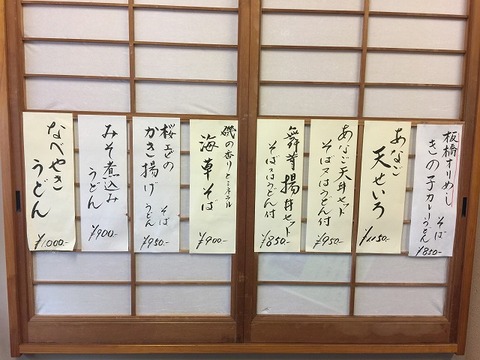 板橋すりめし
きの子カレーうどん
そば
¥850-
あなご
天せいろ
¥1150-
あなご天丼セット
そば又はうどん付
¥950-
舞茸揚丼セット
そば又はうどん付
¥850-
磯の香りとミネラル
海草そば
¥900-
桜えびの
かき揚げ
そば
うどん
¥950-
みそ煮込み
うどん
¥900-
なべやき
うどん
¥1,000-